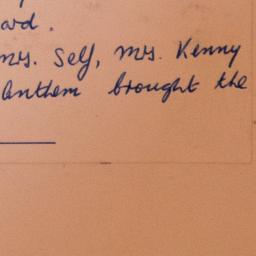 ard.
mrs. Self, mrs. Kenny
anthem brought the